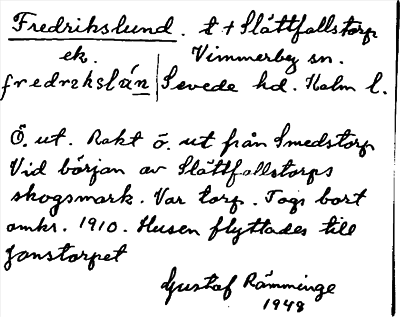 Fredrikslund. t + Slättfallstorp
ek. Vimmerby sn.
fredrekslán Sevede hd. Kalm l.
Ö. ut. Rakt ö. ut från Smedstorp
Vid början av Slättfallstorps
skogsmark. Var torp. Togs bort
omkr. 1910. Husen flyttades till
Jonstorpet
Gustaf Rämminge
1948